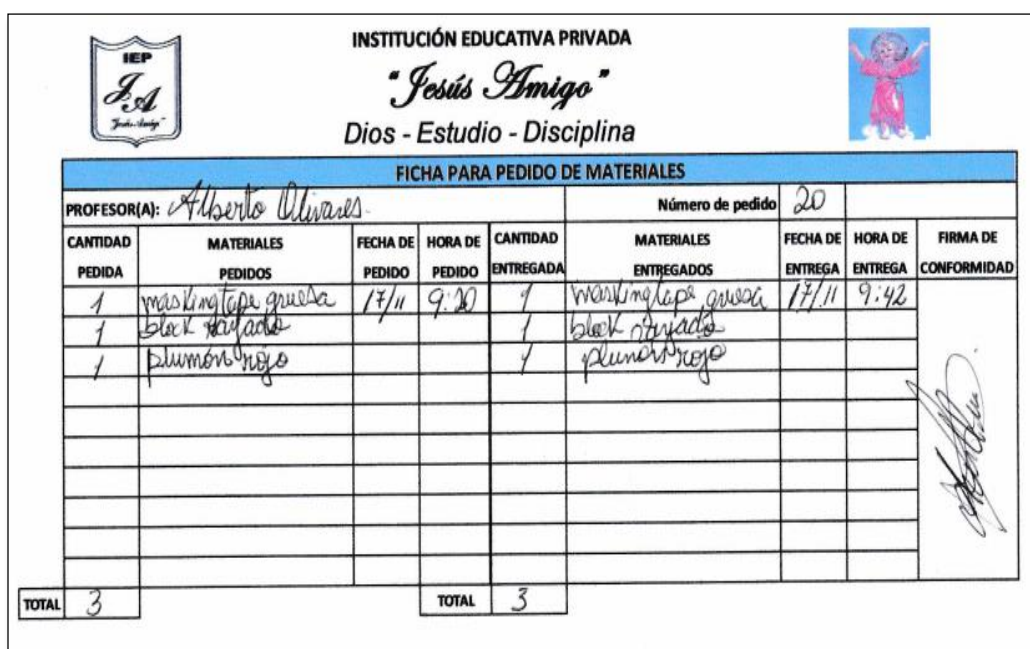 INSTITUCIÓN EDUCATIVA PRIVADA
IEP
JA
"Jesús Amigo"
"Jesús Amigo"
Dios - Estudio - Disciplina
FICHA PARA PEDIDO DE MATERIALES
PROFESOR(A): Alberto Olivares. Número de pedido 20
CANTIDAD PEDIDA MATERIALES PEDIDOS FECHA DE PEDIDO HORA DE PEDIDO CANTIDAD ENTREGADA MATERIALES ENTREGADOS FECHA DE ENTREGA HORA DE ENTREGA FIRMA DE CONFORMIDAD
1 maskingtape gruesa 17/11 9:20 1 maskingtape gruesa 17/11 9:42
1 block rayado 1 block rayado
1 plumón rojo 1 plumón rojo
TOTAL 3 TOTAL 3